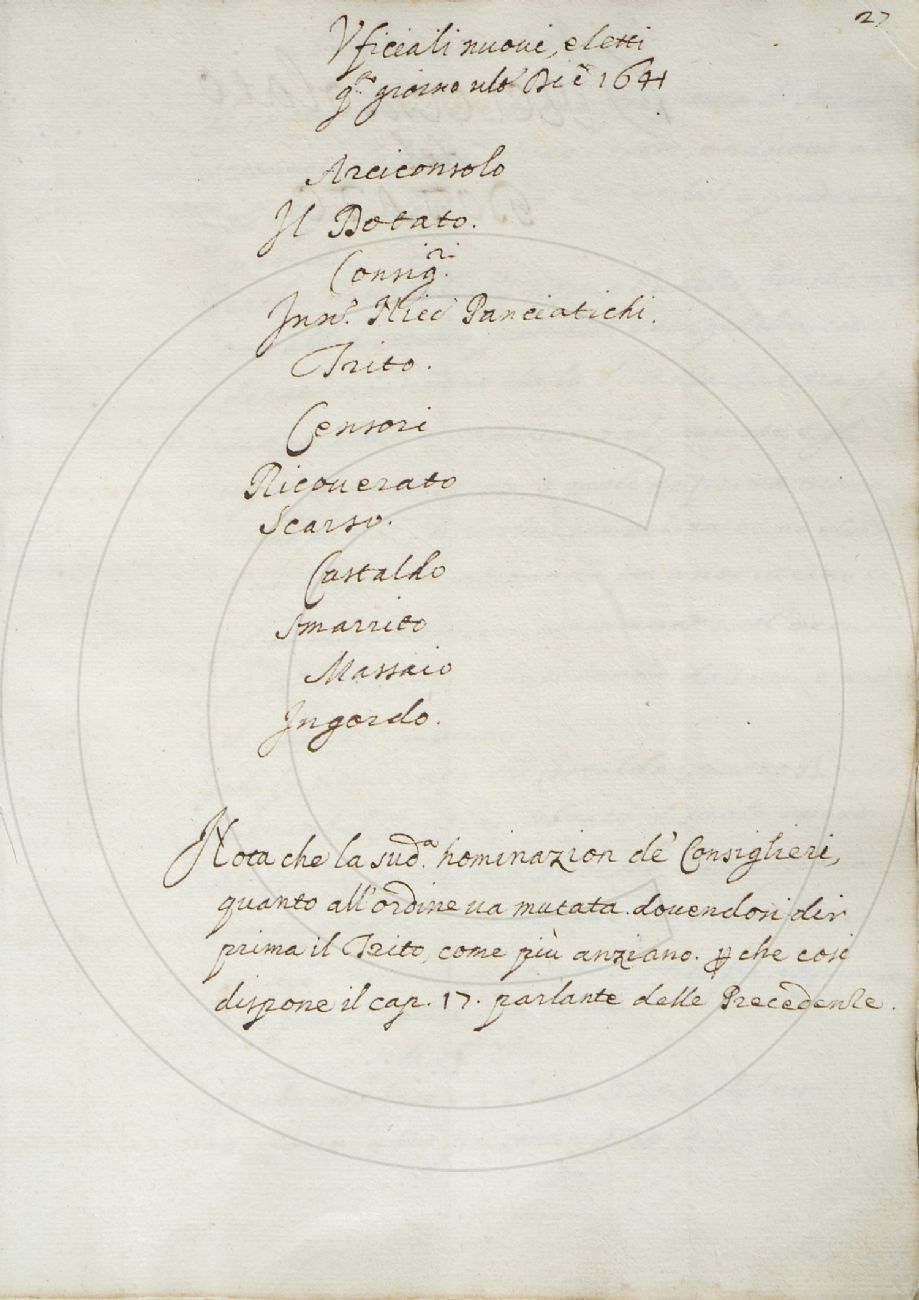 27
Vficiali nuoui, eletti
q.º giorno ulº Di ẽ 1641
Arciconsolo
Il Dotato.
Consig.ri
Inn.º Nicc.º Panciatichi.
Trito.
Censori
Ricouerato
Scarso.
Castaldo
Smarrito
Massaio
Ingordo.
Nota che la sud.a nominazion de' Consiglieri,
quanto all'ordine ua mutata. douendosi dir
prima il Trito, come più anziano. ꝑ che cosi
dispone il cap. 17. parlante delle Precedenze.